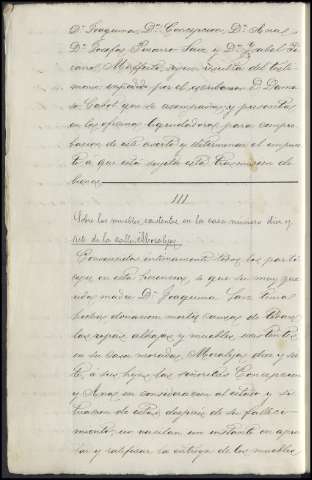 Dª Joaquina, Dª Concepcion, Dª Ana,
Dª Josefa Pizarro Sanz y Dª Isabel
Marforte, segun resulta del testi-
monio expedido por el escribano D. Dama-
so Cabot que se acompañará y presentará
en las oficinas liquidadoras para compro-
bacion de este aserto y determinar el impues-
to á que está sujeta esta trasmision de
bienes.
III
Sobre los muebles existentes en la casa numero diez y
siete de la calle Moraleja.
Convencidos intimamente todos los parti-
cipes en esta herencia, de que su muy que-
rida madre Dª Joaquina Sanz tenia
hecha donacion mortis causa de todas
las ropas alhajas y muebles, existentes
en su casa morada, Moraleja diez y sie-
te, á sus hijas las señoritas Concepcion
y Ana, en consideracion al estado y si-
tuacion de estas, despues de su falleci-
miento, no vacilan un instante en apro-
bar y ratificar la entrega de los muebles,